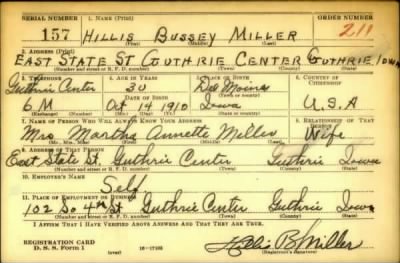 SERIAL NUMBER 1. NAME (Print) ORDER NUMBER
157 HILLIS BUSSEY MILLER 211
(First) (Middle) (Last)
2. ADDRESS (Print)
EAST STATE ST GUTHRIE CENTER GUTHRIE IOWA
(Number and street or R. F. D. number) (Town) (County) (State)
3. TELEPHONE 4. AGE IN YEARS 5. PLACE OF BIRTH 6. COUNTRY OF CITIZENSHIP
Guthrie Center 30 Des Moines
DATE OF BIRTH
6 M Oct 14 1910 Iowa U.S.A
(Exchange) (Number) (Mo.) (Day) (Yr.) (State or country)
7. NAME OF PERSON WHO WILL ALWAYS KNOW YOUR ADDRESS 8. RELATIONSHIP OF THAT PERSON
Mrs Martha Annette Miller Wife
(Mr., Mrs., Miss) (First) (Middle) (Last)
9. ADDRESS OF THAT PERSON
East State St. Guthrie Center Guthrie Iowa
(Number and street or R. F. D. number) (Town) (County) (State)
10. EMPLOYER'S NAME
Self
11. PLACE OF EMPLOYMENT OR BUSINESS
102 So 4th St Guthrie Center Guthrie Iowa
(Number and street or R. F. D. number) (Town) (County) (State)
I AFFIRM THAT I HAVE VERIFIED ABOVE ANSWERS AND THAT THEY ARE TRUE.
REGISTRATION CARD
D. S. S. Form 1 16-17105 Hillis B Miller
(Registrant's signature)